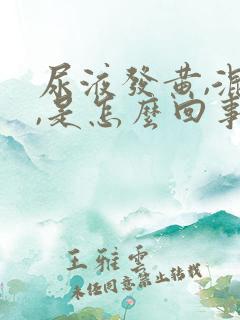 尿液發黃,混
,是怎麼回事
王雅雲
未经同意禁止转载